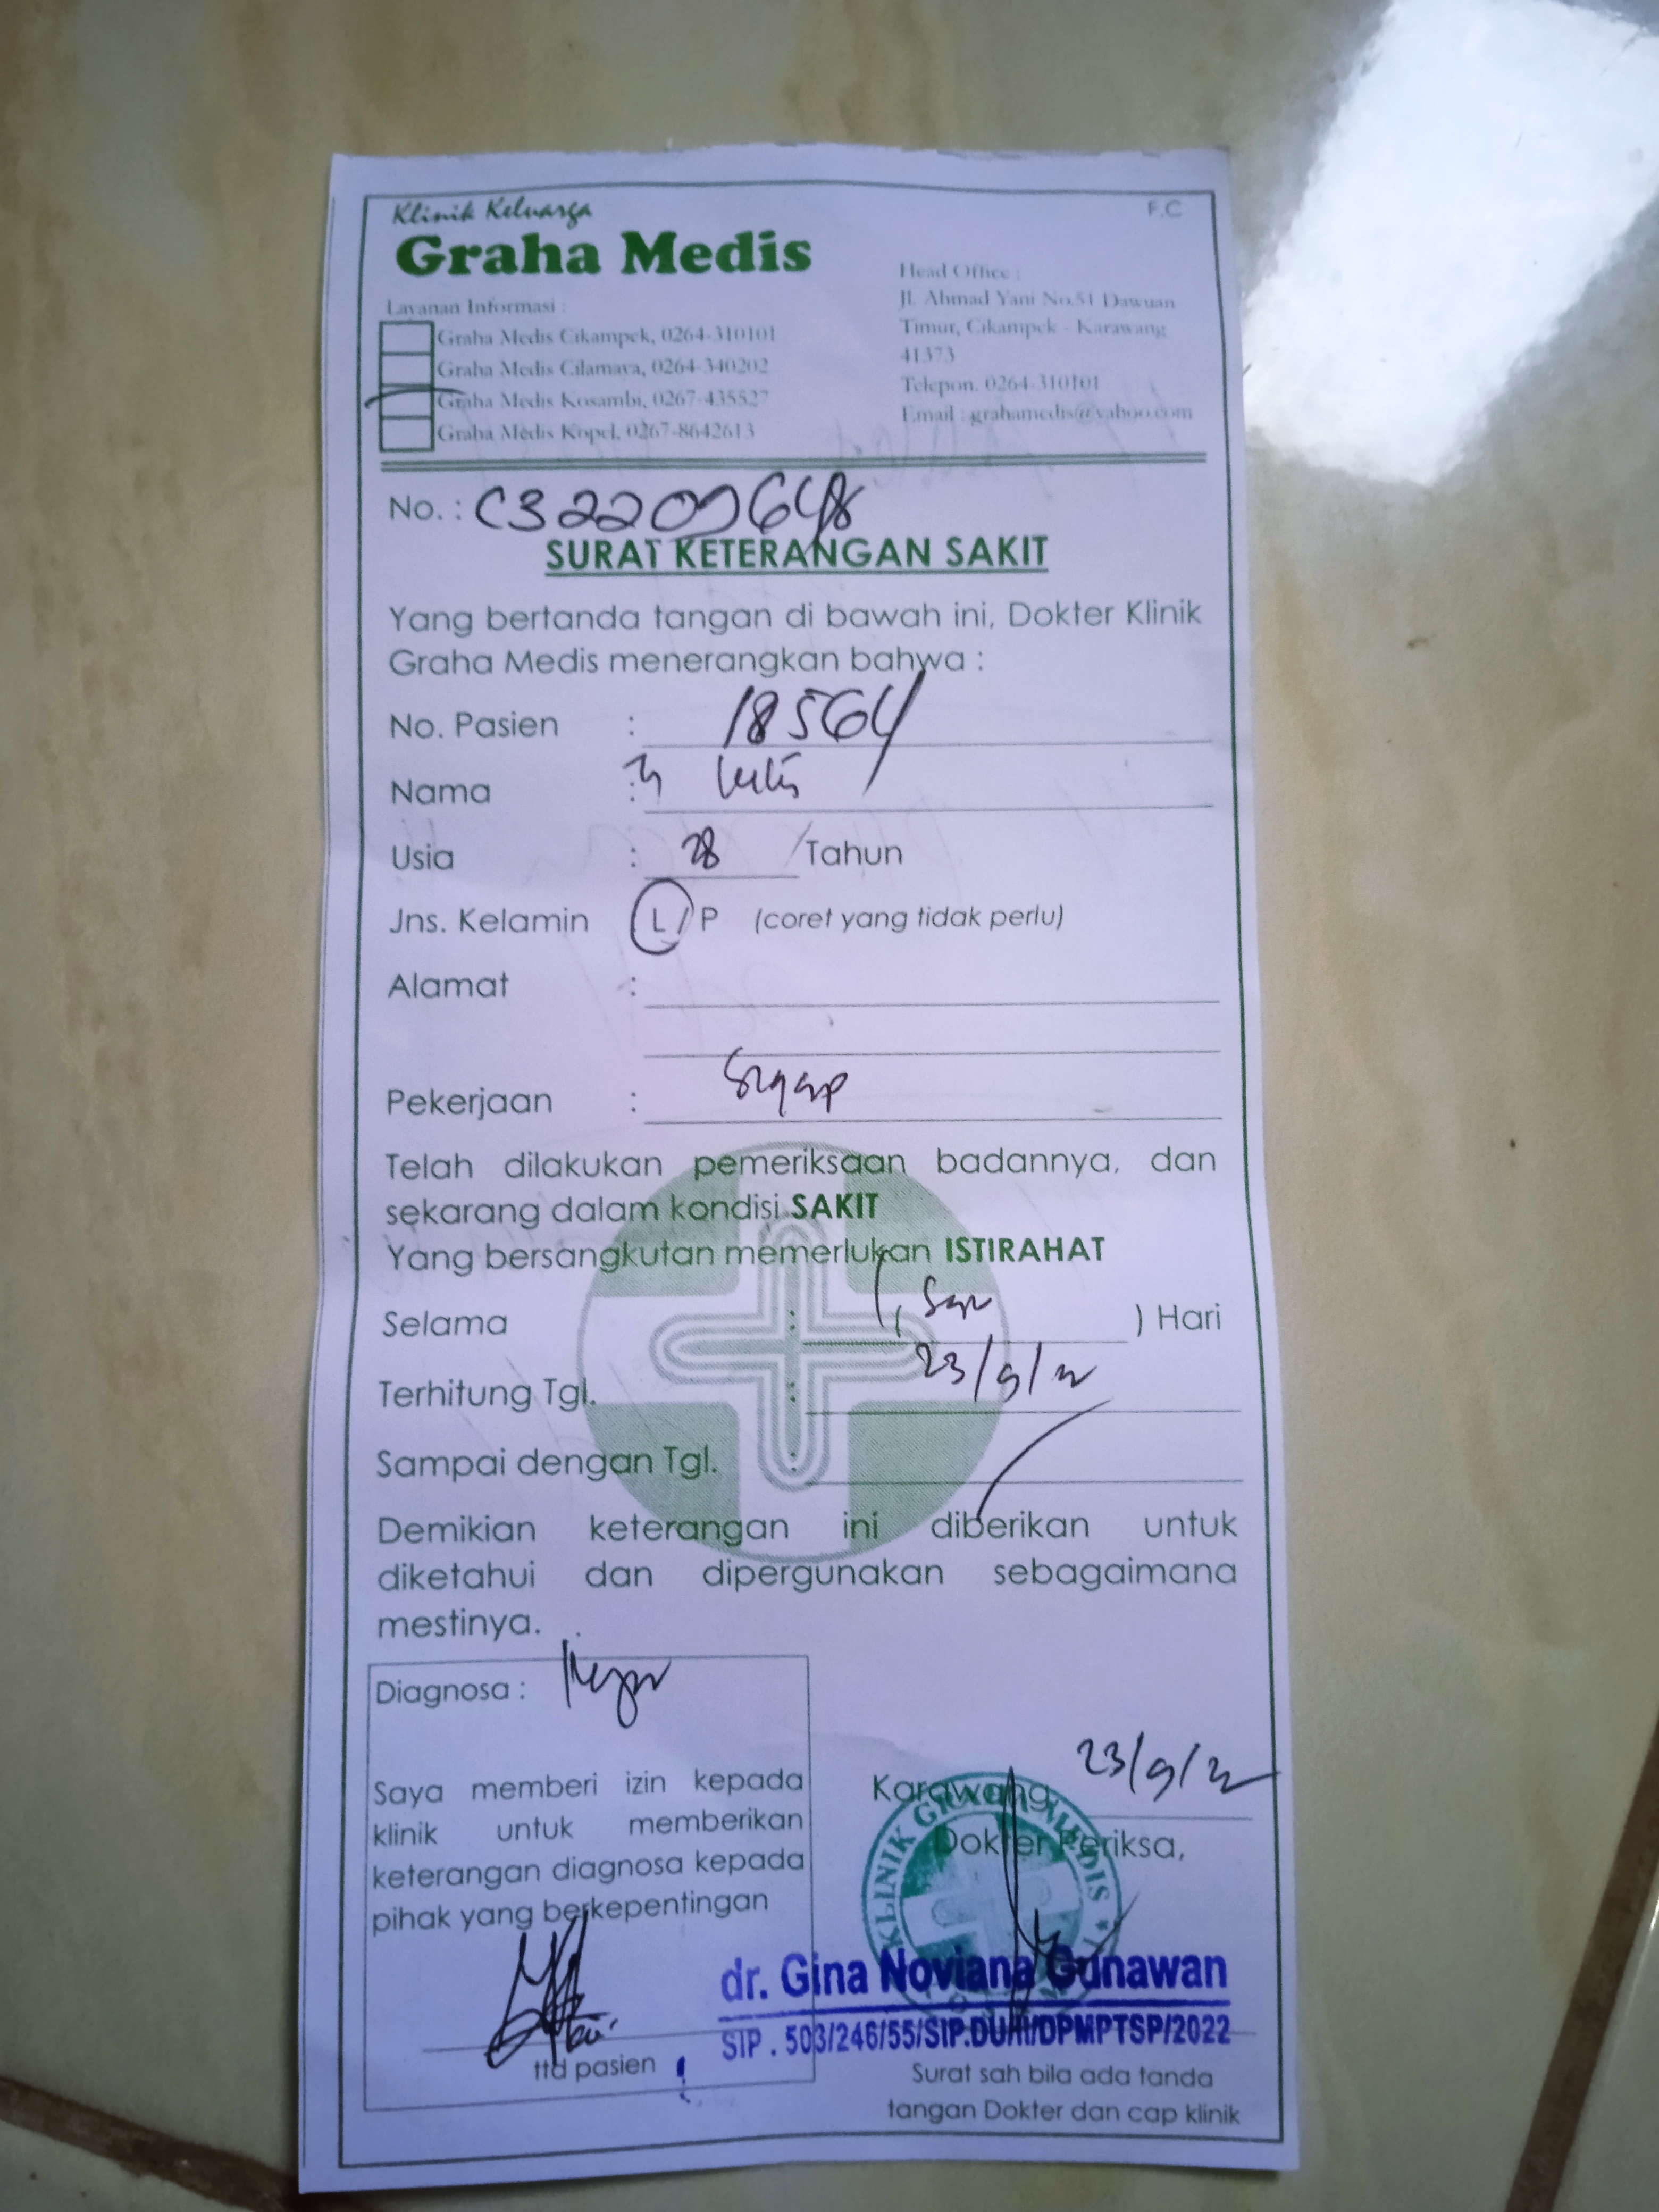 Klinik Keluarga
Graha Medis
F.C
Layanan Informasi :
Graha Medis Cikampek, 0264-310101
Graha Medis Cilamaya, 0264-340202
Graha Medis Kosambi, 0267-435527
Graha Medis Kopel, 0267-8642613
Head Office :
Jl. Ahmad Yani No.51 Dawuan
Timur, Cikampek - Karawang
41373
Telepon. 0264-310101
Email : grahamedis@yahoo.com
No. :
SURAT KETERANGAN SAKIT
Yang bertanda tangan di bawah ini, Dokter Klinik
Graha Medis menerangkan bahwa :
No. Pasien : 18564
Nama :
Usia : 28 / Tahun
Jns. Kelamin L / P (coret yang tidak perlu)
Alamat :
Pekerjaan :
Telah dilakukan pemeriksaan badannya, dan
sekarang dalam kondisi SAKIT
Yang bersangkutan memerlukan ISTIRAHAT
Selama : 1 ( ) Hari
Terhitung Tgl. : 23/9/22
Sampai dengan Tgl. :
Demikian keterangan ini diberikan untuk
diketahui dan dipergunakan sebagaimana
mestinya.
Diagnosa :
Saya memberi izin kepada
klinik untuk memberikan
keterangan diagnosa kepada
pihak yang berkepentingan
ttd pasien
Karawang, 23/9/22
Dokter Periksa,
KLINIK GRAHA MEDIS
dr. Gina Noviana Gunawan
SIP . 503/246/55/SIP.DU/II/DPMPTSP/2022
Surat sah bila ada tanda
tangan Dokter dan cap klinik